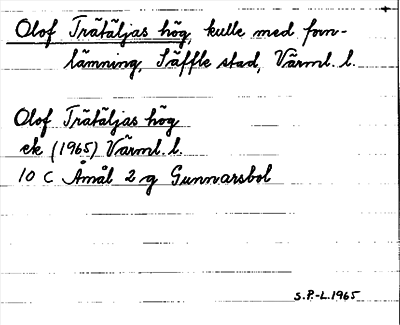 Olof Trätäljas hög, kulle med forn-
lämning, Säffle stad, Värml. l.
Olof Trätäljas hög
ek (1965) Värml. l.
10 C Åmål 2 g Gunnarsbol
S.P.-L. 1965